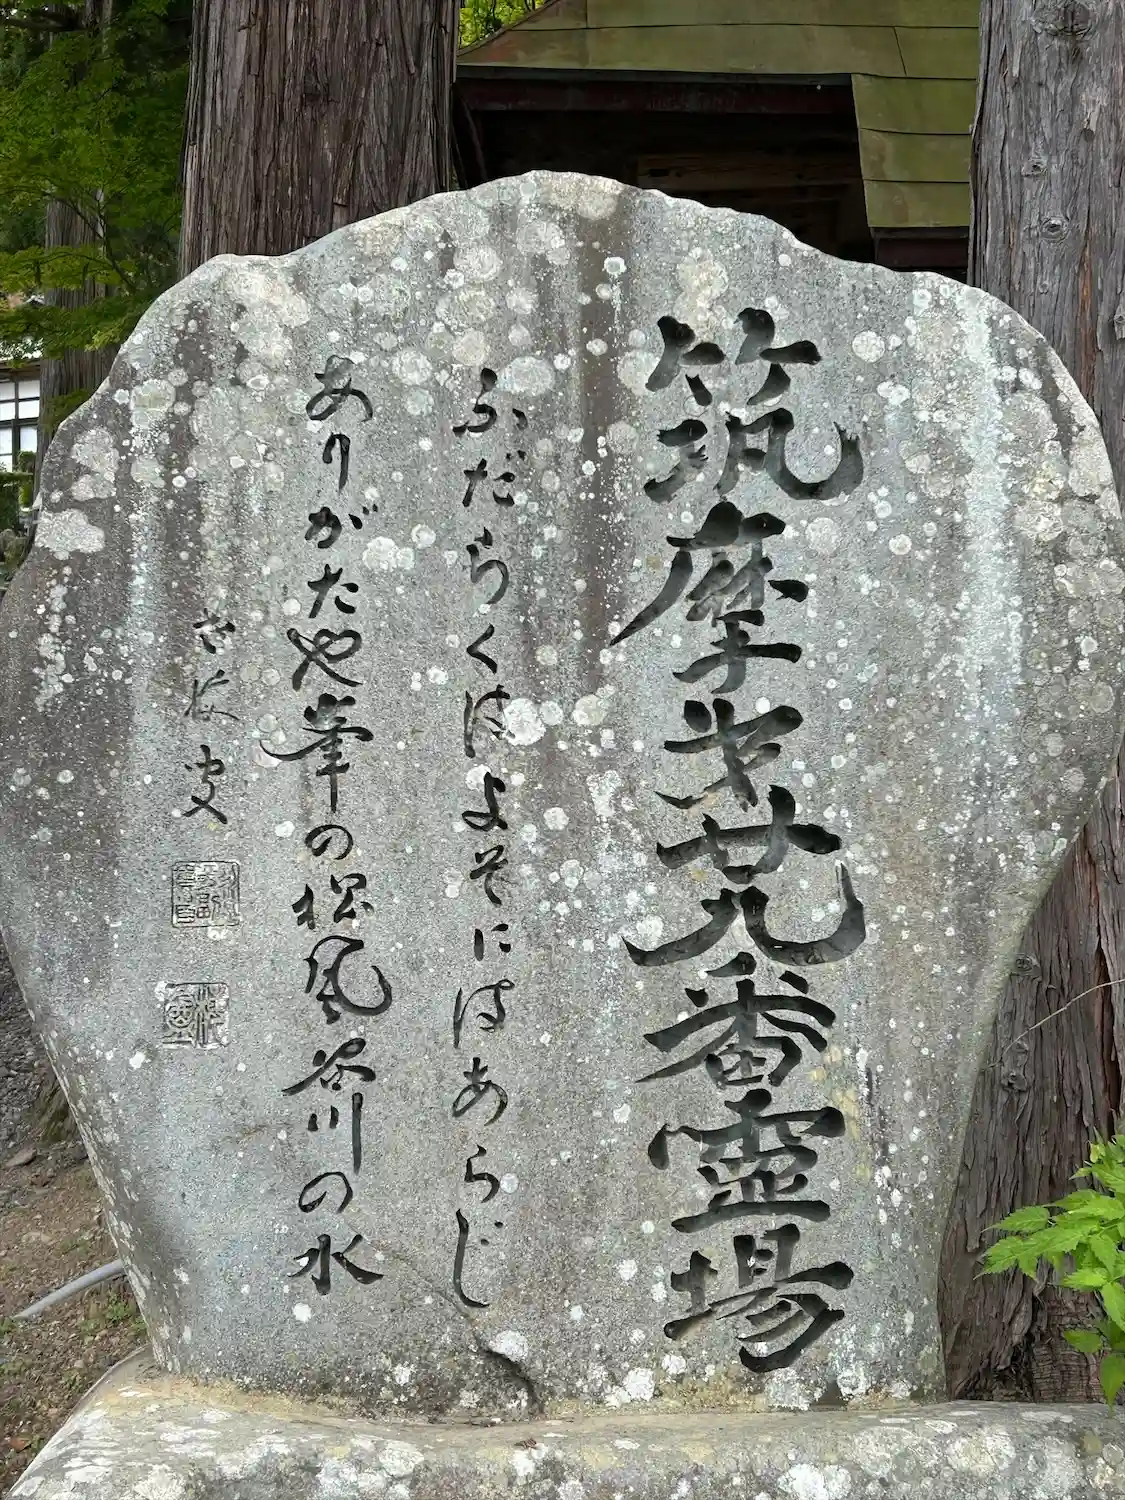 筑摩第廿九番霊場
ふだらくはよそにはあらじ
ありがたや峯の松風谷川の水